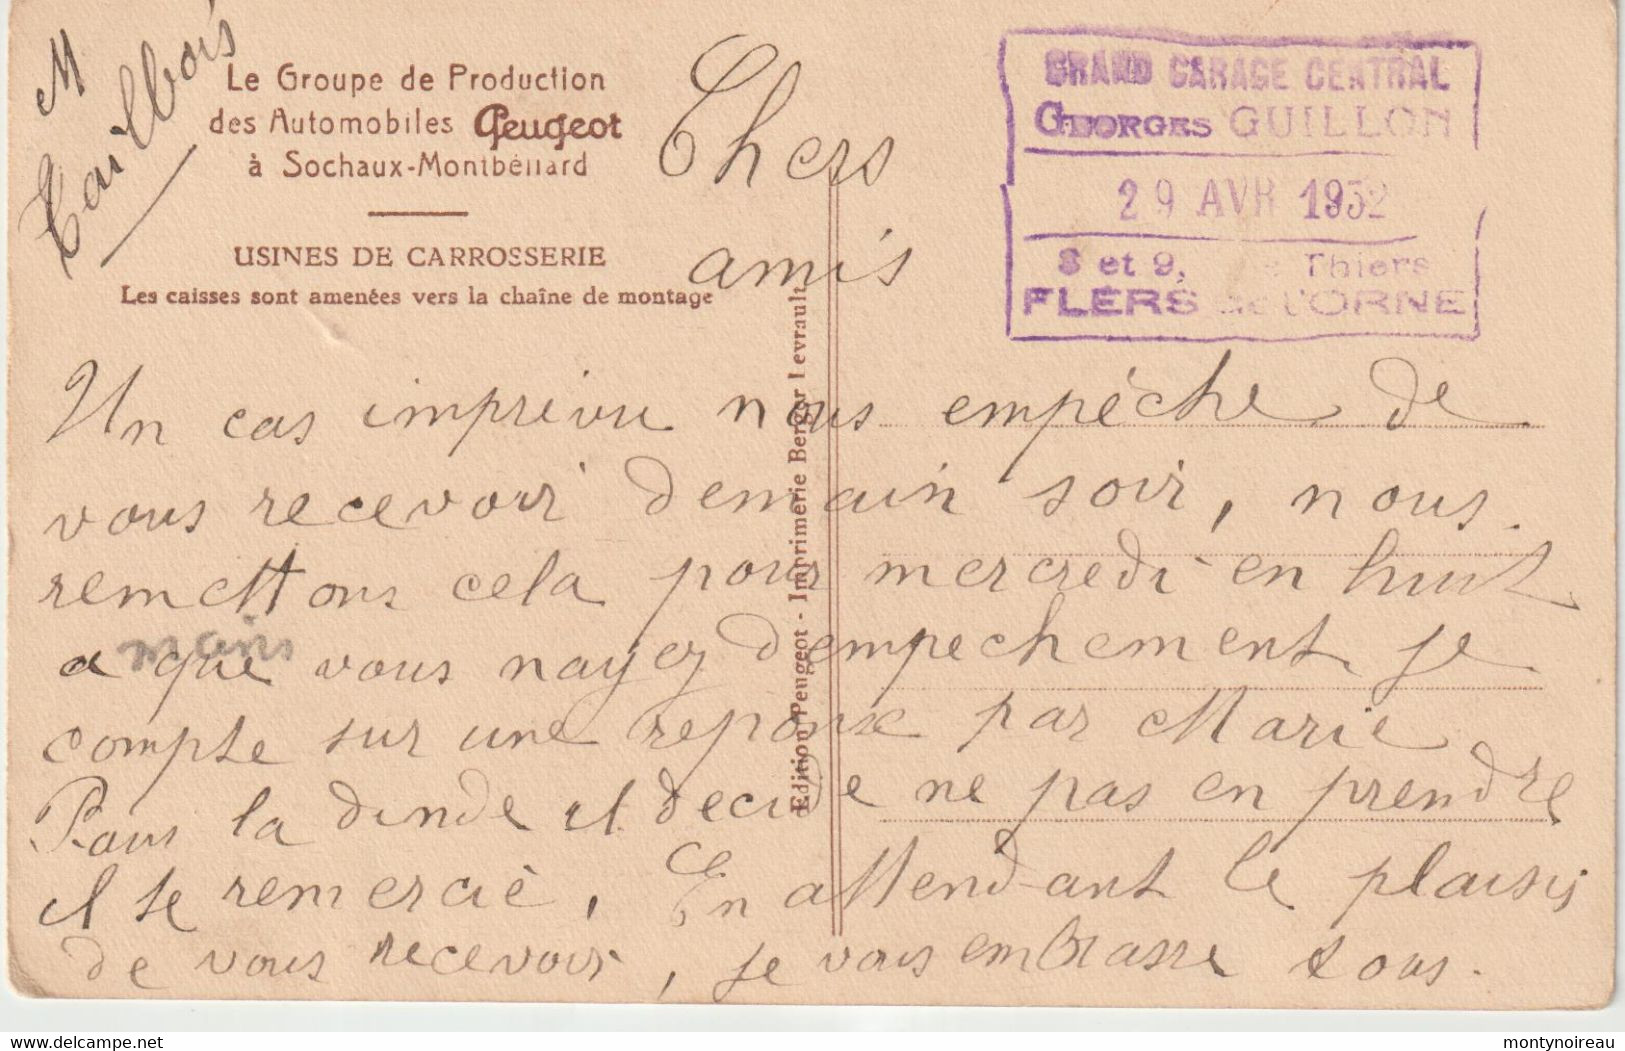 M
Tailbois
Le Groupe de Production
des Automobiles Peugeot
à Sochaux-Montbéliard
USINES DE CARROSSERIE
Les caisses sont amenées vers la chaîne de montage
GRAND GARAGE CENTRAL
GEORGES GUILLON
29 AVR 1932
8 et 9, Thiers
FLERS de l'ORNE
Edition Peugeot - Imprimerie Berger Levrault
Chers
amis
Un cas imprévu nous empêche de
vous recevoir demain soir, nous
remettons cela pour mercredi en huit
a mains que vous nayez dempechement je
compte sur une reponse par Marie
Pour la dinde il decide ne pas en prendre
il te remercie, En attendant le plaisir
de vous recevoir, je vous embrasse tous.
Delcampe.net
montynoireau